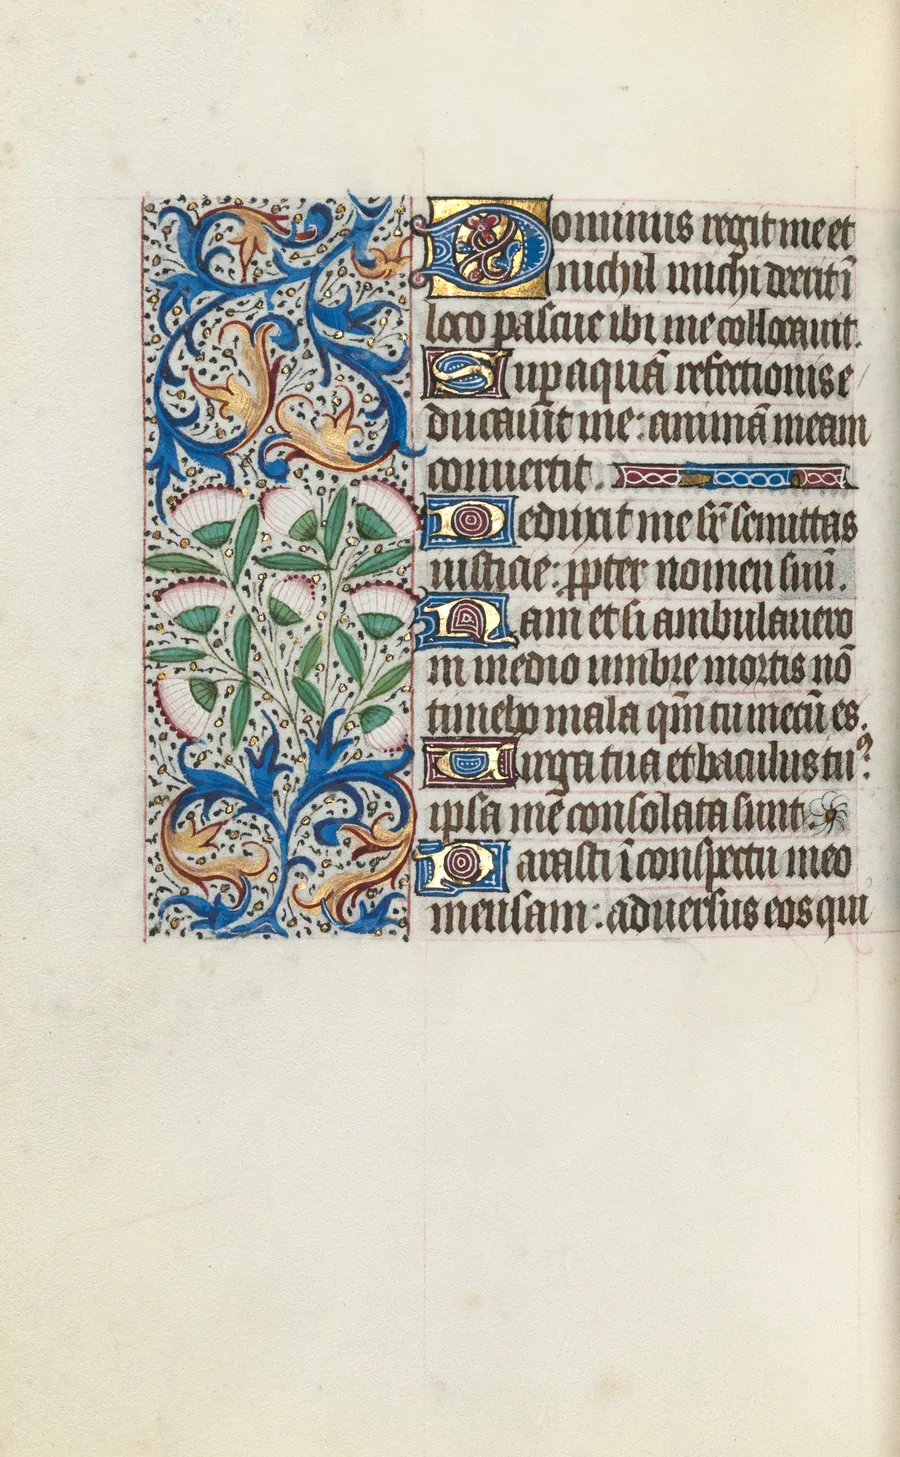 Dominus regit me et
nichil michi deerit ī
loco pascue ibi me collocauit.
Sup aquā refectionis e
ducauit me: animā meam
conuertit.
Deduxit me sr̄ semittas
iusticie: ꝓpter nomen suū.
Nam et si ambulauero
in medio umbre mortis nō
timebo mala qm̄ tu mecū es.
Uirga tua et baculus tuꝰ:
ipsa me consolata sunt
Parasti ī conspectu meo
mensam: aduersus eos qui